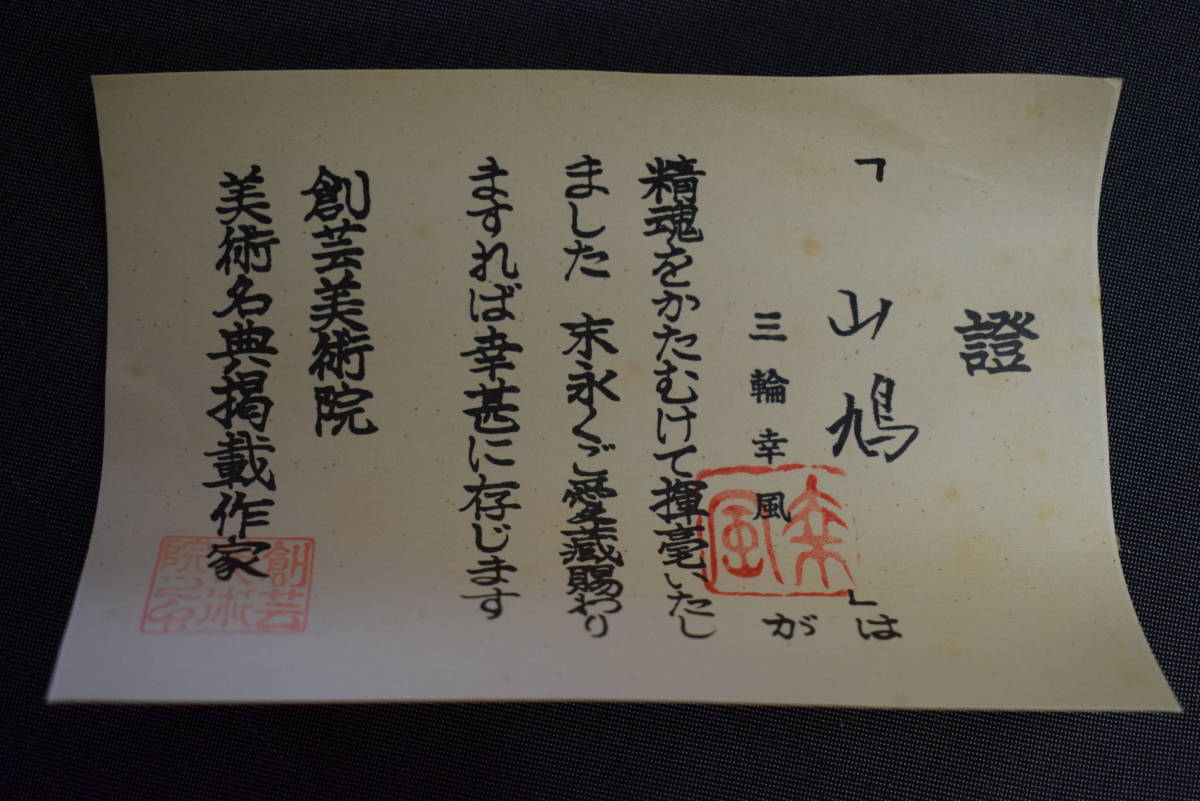 證
「山鳩」は
三輪幸風が
精魂をかたむけて揮毫いたし
ました 末永くご愛蔵賜わり
ますれば幸甚に存じます
創芸美術院
美術名典掲載作家
幸風